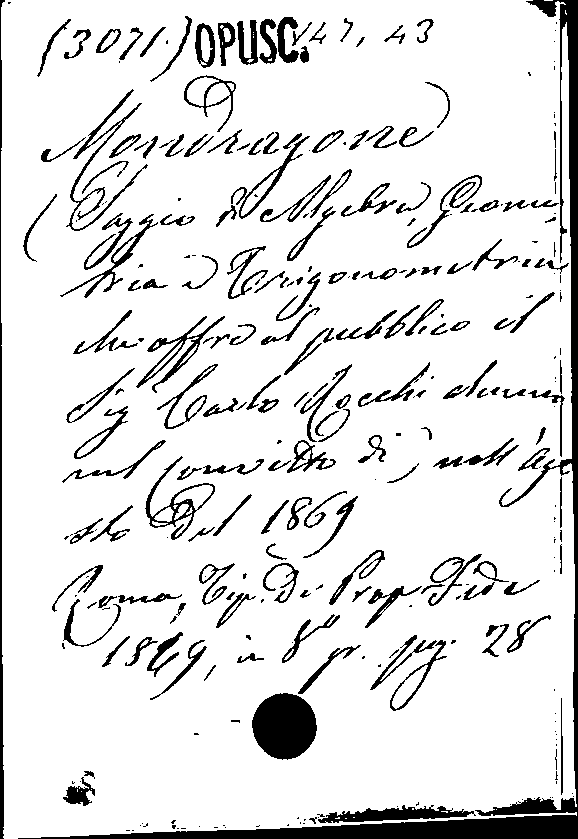 (3071.) OPUSC. 147, 43
Mondragone
(Saggio di Algebra, Geome
tria e Trigonometria
che offre al pubblico il
Sig Carlo Rocchi alunno
nel convitto di) nell'Ago
sto del 1869
Roma, Tip. De Prop. Fide
1869, in 8º gr. pag. 28